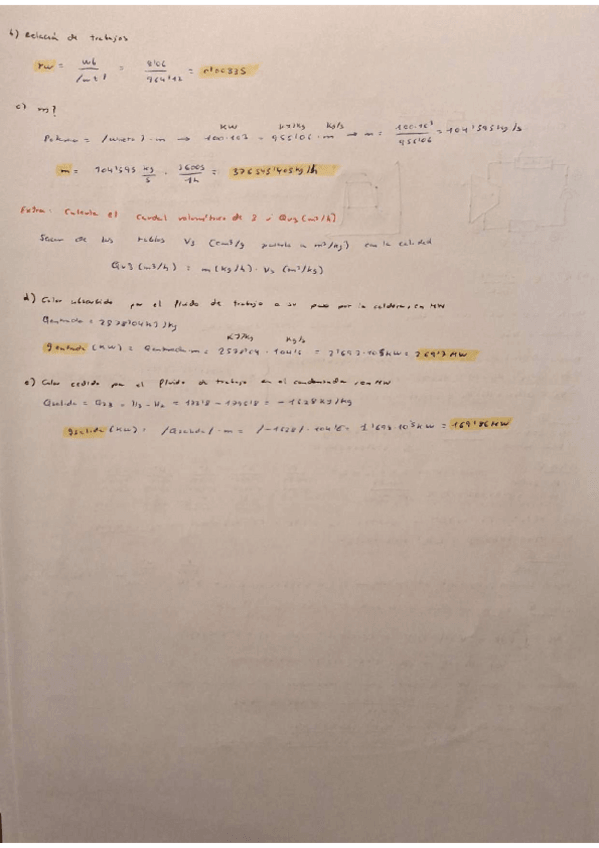 b) Relación de trabajos
rw = wb / |wt| = 8'06 / 964'12 = 0'00835
c) m?
Potencia = |wneto| · m → 100·10³ = 955'06 · m → m = 100·10³ / 955'06 = 104'595 kg/s
KW KJ/Kg kg/s
m = 104'595 kg/s · 3600s / 1h = 376545'405 kg/h
Extra. Calcula el caudal volumétrico de 3 ; Qv3 (m³/h)
Sacar de las tablas V3 (cm³/g pasarlo a m³/kg) con la calidad
Qv3 (m³/h) = m (kg/h) · V3 (m³/kg)
d) Calor absorbido por el fluido de trabajo a su paso por la caldera, en MW
Qentrada = KJ/kg
KJ/kg kg/s
qentrada (KW) = Qentrada · m = = = 269'3 MW
e) Calor cedido por el fluido de trabajo en el condensador, en MW
Qsalida = Q23 = = = -1628 kJ/kg
qsalida (KW) = |Qsalida| · m = |-1628| · = = 169'86 MW